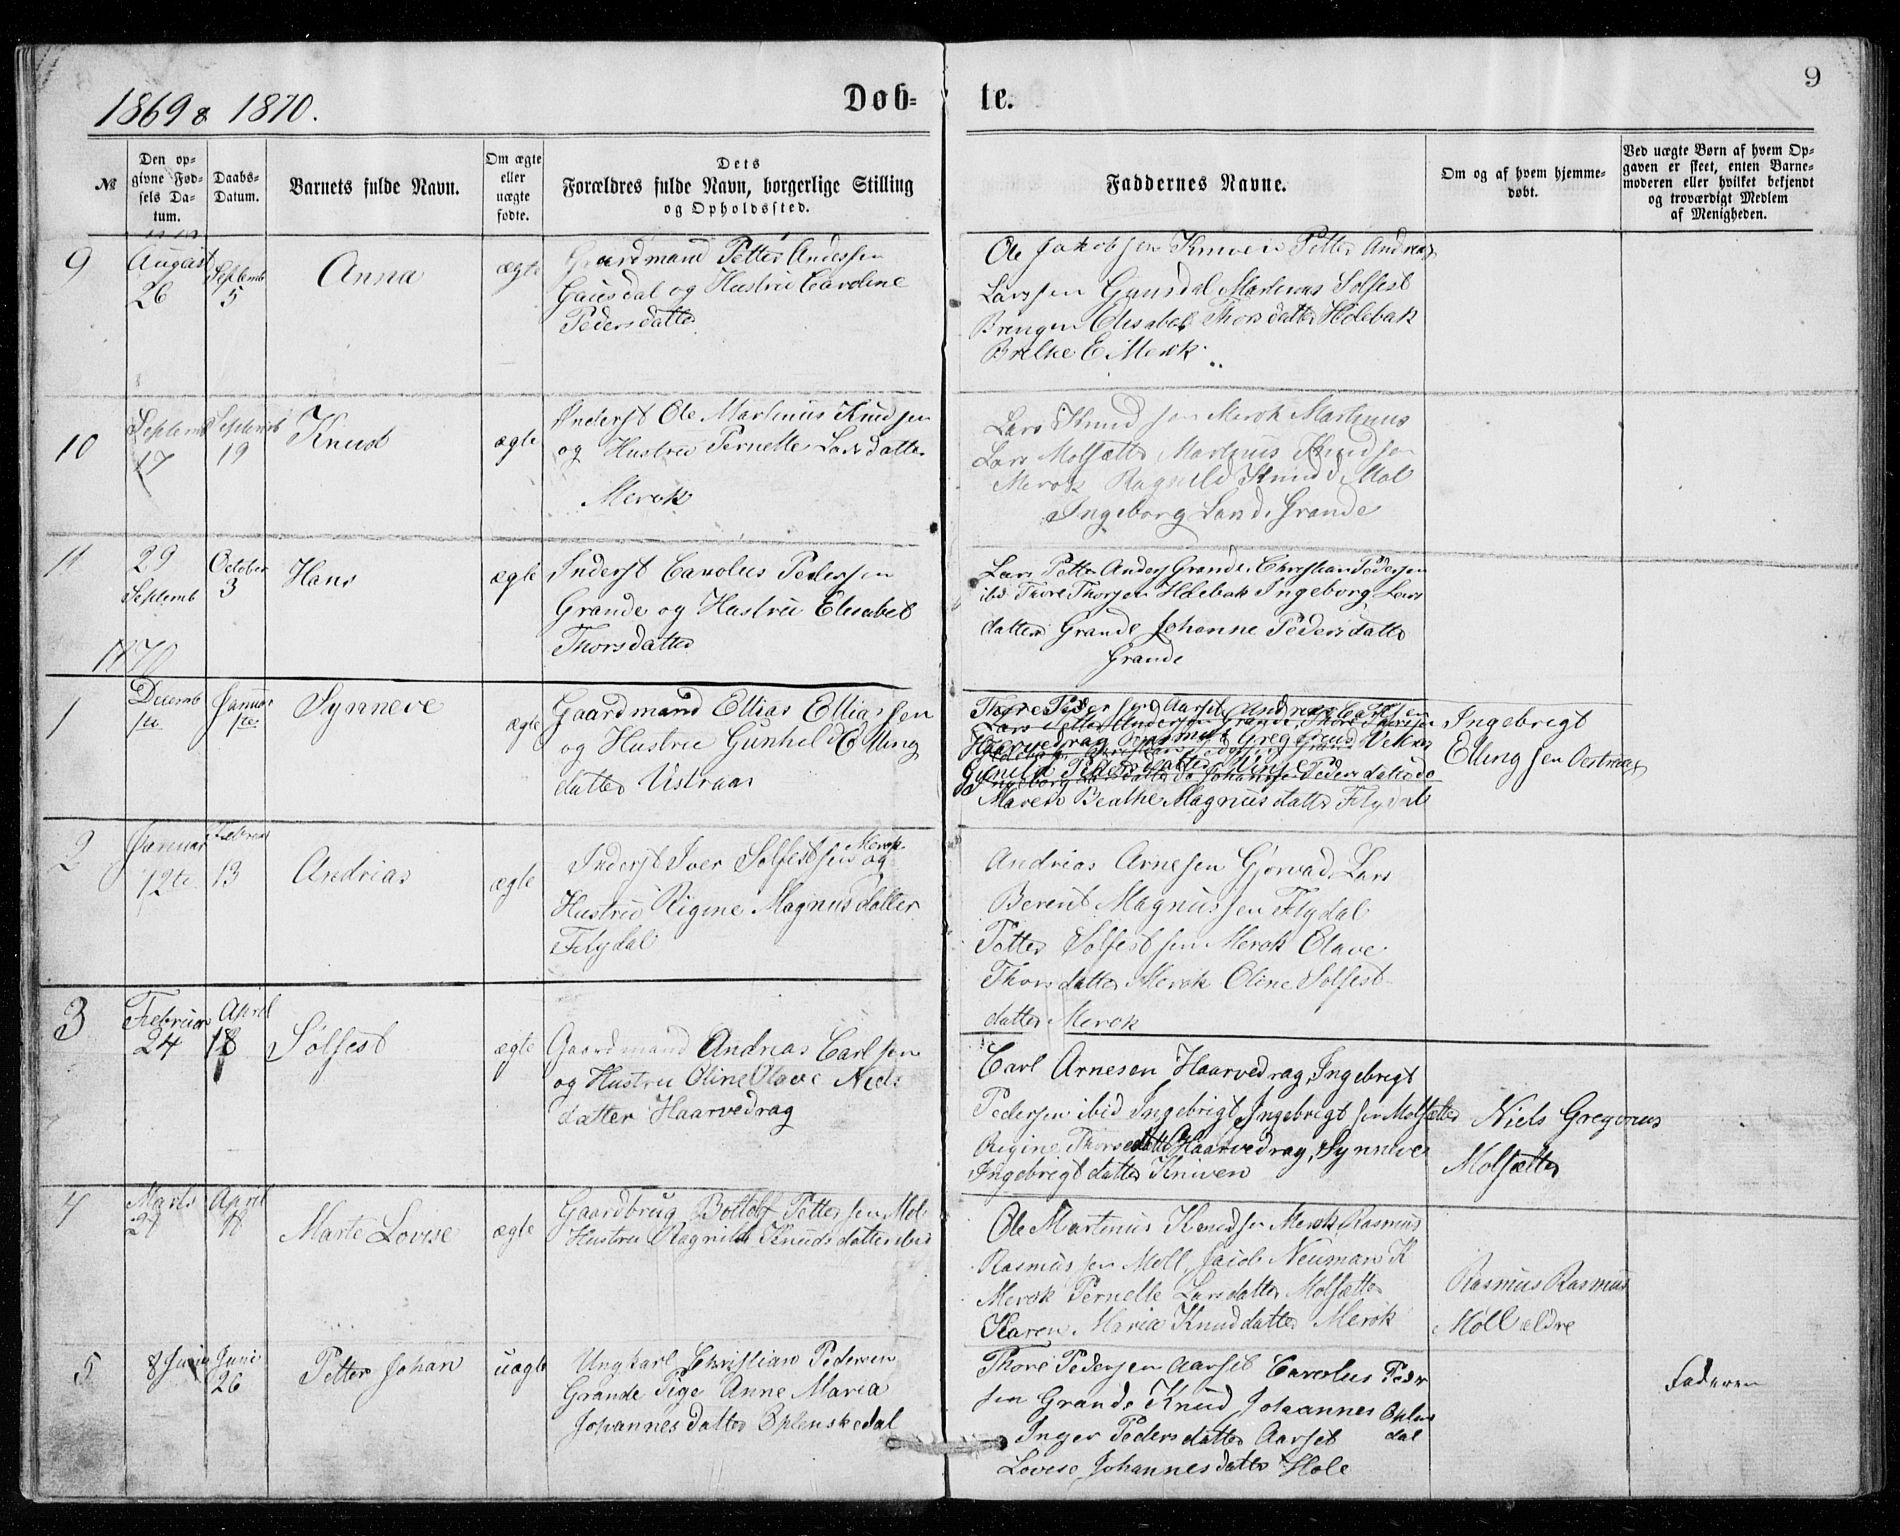 1869 & 1870.
Døb-
te.
9
№
Den op-
givne Fød-
sels Da-
tum.
Daabs-
Datum.
Barnets fulde Navn.
Om ægte
eller
uægte
fødte.
Dets
Forældres fulde Navn, borgerlige Stilling
og Opholdssted.
Faddernes Navne.
Om og af hvem hjemme-
døbt.
Ved uægte Børn af hvem Op-
gaven er skeet, enten Barne-
moderen eller hvilket bekjendt
og troværdigt Medlem
af Menigheden.
9
August
26
Septemb
5
Anna
ægte
Gaardmand Petter Anderssen
Gausdal og Hustru Caroline
Pedersdatter
Ole Jakobsen Kniven Petter Andreas
Larssen Gausdal Martinus Solfest
Elisabet Thorsdatter Holebak
E Merok
10
Septemb
17
Septemb
19
Knud
ægte
Inderst Ole Martinus Knudsen
og Hustru Pernelle Larsdatter
Merok
Lars Knudsen Merok Martinus
Lars Molsætter Martinus Knudsen
Merok Ragnild Knudsd. Mol
Ingeborg Larsd. Grande
11
29
Septemb
October
3
Hans
ægte
Inderst Carolus Pedersen
Grande og Hustru Elisabet
Thorsdatter
Lars Petter Anders Grande, Christian Pedersen
ibd Thore Thorsen Holebak Ingeborg Lars
datter Grande Johanne Pedersdatter
Grande
1870
1
Decemb
Januar
Synneve
ægte
Gaardmand Ellias Elliassen
og Hustru Gunhild Elling
datter Vestraas
Thore Pedersen Aarset Andreas Carlsen
Haarvedrag Rasmus Gregorius
Gunild Pedersdatter
Maren Beathe Magnusdatter Flydal
Ingebrigt
Ellingsen Vestraas
2
Januar
12te
Februar
13
Andrias
ægte
Inderst Iver Solfestsen Merok og
Hustru Rigine Magnusdatter
Flydal
Andrias Arnesen Gjørvad, Lars
Berent Magnussen Flydal
Petter Solfestsen Merok Olave
Thorsdatter Merok Oline Solfest-
datter Merok
3
Februar
24
April
18
Sølfest
ægte
Gaardmand Andrias Carlsen
og Hustru Oline Olave Niels
datter Haarvedrag
Carl Arnesen Haarvedrag, Ingebrigt
Pedersen ibid Ingebrigt Ingebrigtsen Molsætter
Rigine Thorsdatter Haarvedrag, Synneve
Ingebrigtdatter Kniven
Niels Gregorius
Molsætter
4
Marts
April
Marte Lovise
ægte
Gaardbrug Bottolf Pettersen Mol
Hustru Ragnild Knudsdatter ibid
Ole Martinus Knudsen Merok, Rasmus
Rasmussen Moll, Jacob Neuman K
Merok Pernelle Larsdatter Molsætter
Karen Maria Knuddatter Merok
Rasmus Rasmus
Moll ældre
5
8 Juni
Juni
26
Petter Johan
uægte
Ungkarl Christian Pedersen
Grande Pige Anne Maria
Johannesdatter Oplenskedal
Thore Pedersen Aarset Carolus Peder
sen Grande Knud Johannes Oplens
dal
Inger Pedersdatter Aarset
Lovise Johannesdatter Hole
Faderen